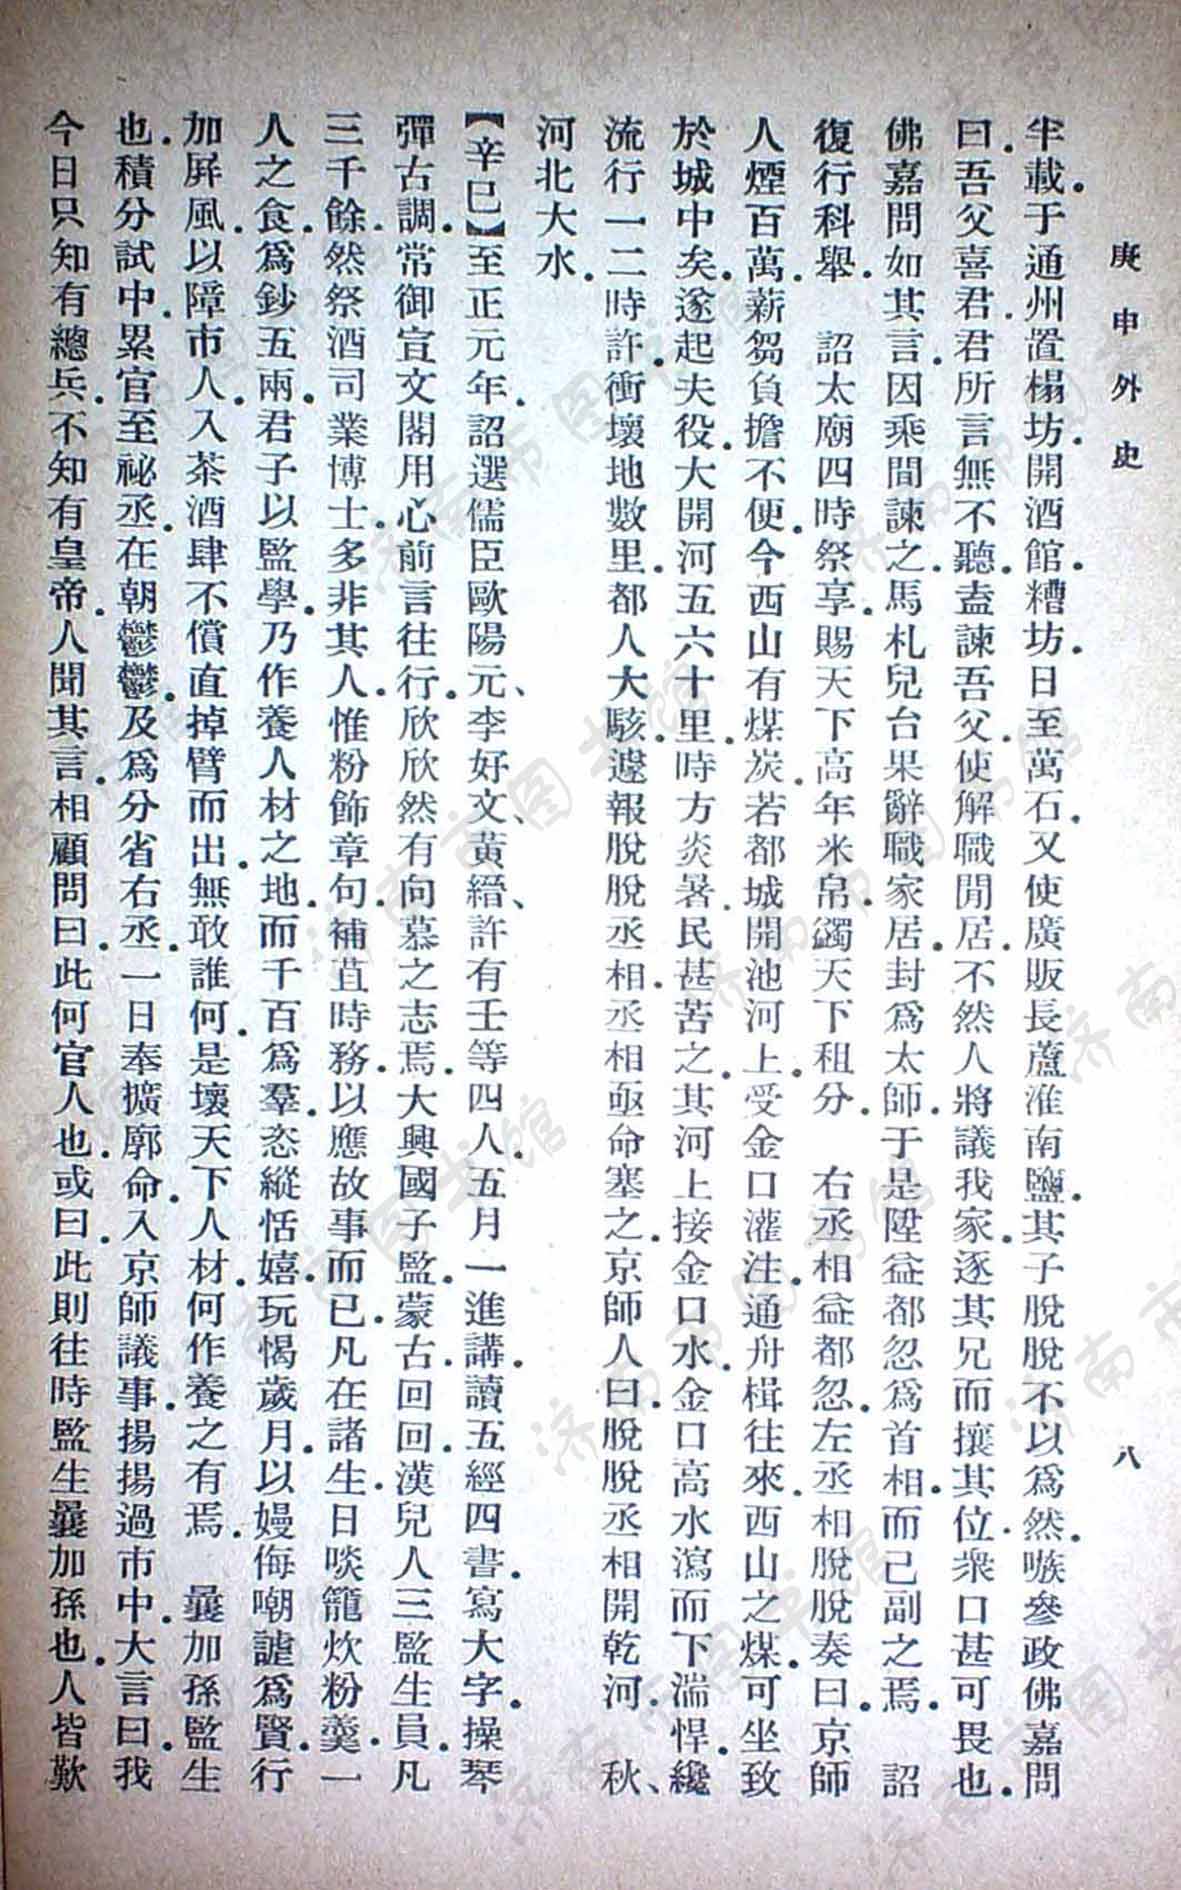 庚申外史　八
半載。于通州置榻坊。開酒館糟坊。日至萬石。又使廣販長蘆淮南鹽。其子脫脫不以爲然。嗾參政佛嘉問
曰。吾父喜君。君所言無不聽。盍諫吾父。使解職閒居。不然人將議我家。逐其兄而攘其位。衆口甚可畏也。
佛嘉問如其言。因乘間諫之。馬札兒台果辭職家居。封爲太師。于是陞益都忽爲首相。而己副之焉。　詔
復行科舉。　詔太廟四時祭享。賜天下高年米帛。蠲天下租分。　右丞相益都忽。左丞相脫脫奏曰。京師
人煙百萬。薪芻負擔不便。今西山有煤炭。若都城開池河上。受金口灌注。通舟楫往來。西山之煤。可坐致
於城中矣。遂起夫役。大開河五六十里。時方炎暑。民甚苦之。其河上接金口水。金口高水瀉而下湍悍。纔
流行一二時許。衝壞地數里。都人大駭。遽報脫脫丞相。丞相亟命塞之。京師人曰。脫脫丞相開乾河。　秋、
河北大水。
【辛巳】至正元年。詔選儒臣歐陽元、李好文、黃縉、許有壬等四人。五月一進講。讀五經四書。寫大字。操琴
彈古調。常御宣文閣。用心前言往行。欣欣然有向慕之志焉。大興國子監。蒙古。回回。漢兒人三監生員。凡
三千餘。然祭酒司業博士。多非其人。惟粉飾章句。補苴時務。以應故事而已。凡在諸生。日啖籠炊粉羹。一
人之食。爲鈔五兩。君子以監學。乃作養人材之地。而千百爲羣。恣縱恬嬉。玩愒歲月。以嫚侮嘲謔爲賢。行
加屏風。以障市人。入茶酒肆不償直掉臂而出。無敢誰何。是壞天下人材。何作養之有焉。　曩加孫監生
也。積分試中。累官至祕丞。在朝鬱鬱。及爲分省右丞。一日奉擴廓命。入京師議事。揚揚過市中。大言曰。我
今日只知有總兵。不知有皇帝。人聞其言。相顧問曰。此何官人也。或曰。此則往時監生曩加孫也。人皆歎